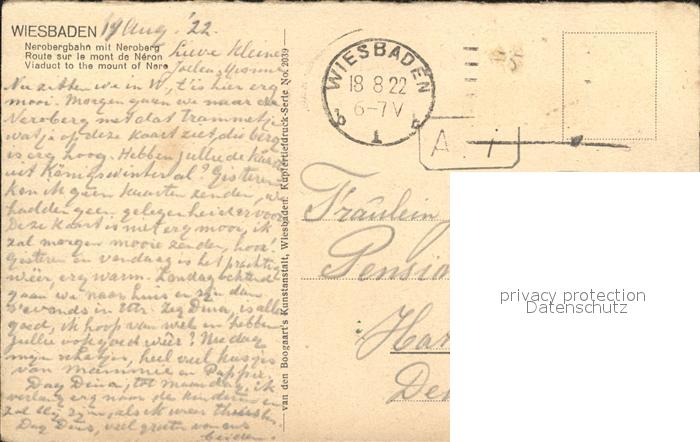 WIESBADEN 17 Aug. '22.
Nerobergbahn mit Neroberg
Route sur le mont de Néron
Viaduct to the mount of Nero
Lieve kleine
Nu zitten we in W, 't is hier erg
mooi. Morgen gaan we naar de
Neroberg met dat trammetje
wat je op deze kaart ziet, die berg
is erg hoog. Hebben jullie de kaart
uit Königswinter al? Gisteren
kon ik geen kaarten zenden, we
hadden geen gelegenheid er voor
Deze kaart is niet erg mooi, ik
zal morgen mooie zenden, hoor!
Gisteren en vandaag is het prachtig
weer, erg warm. Zondagochtend
gaan we naar huis en zijn dan
's avonds in Utr. Zeg Dina, is alles
goed, ik hoop van wel en hebben
jullie ook goed weer? Nu dag
mijn schatjes, heel veel kusjes
van Mammie en Pappie.
Dag Dina, tot maandag, ik
verlang erg naar de kinderen en
zal blij zijn, als ik weer thuis ben.
Dag Dina, veel groeten van ons
beiden.
van den Boogaart's Kunstanstalt, Wiesbaden. Kupfertiefdruck-Serie No. 2039
WIESBADEN
18 8 22
6-7V
b 1 b
A
Fräulein
Pensio
Har
De
privacy protection
Datenschutz